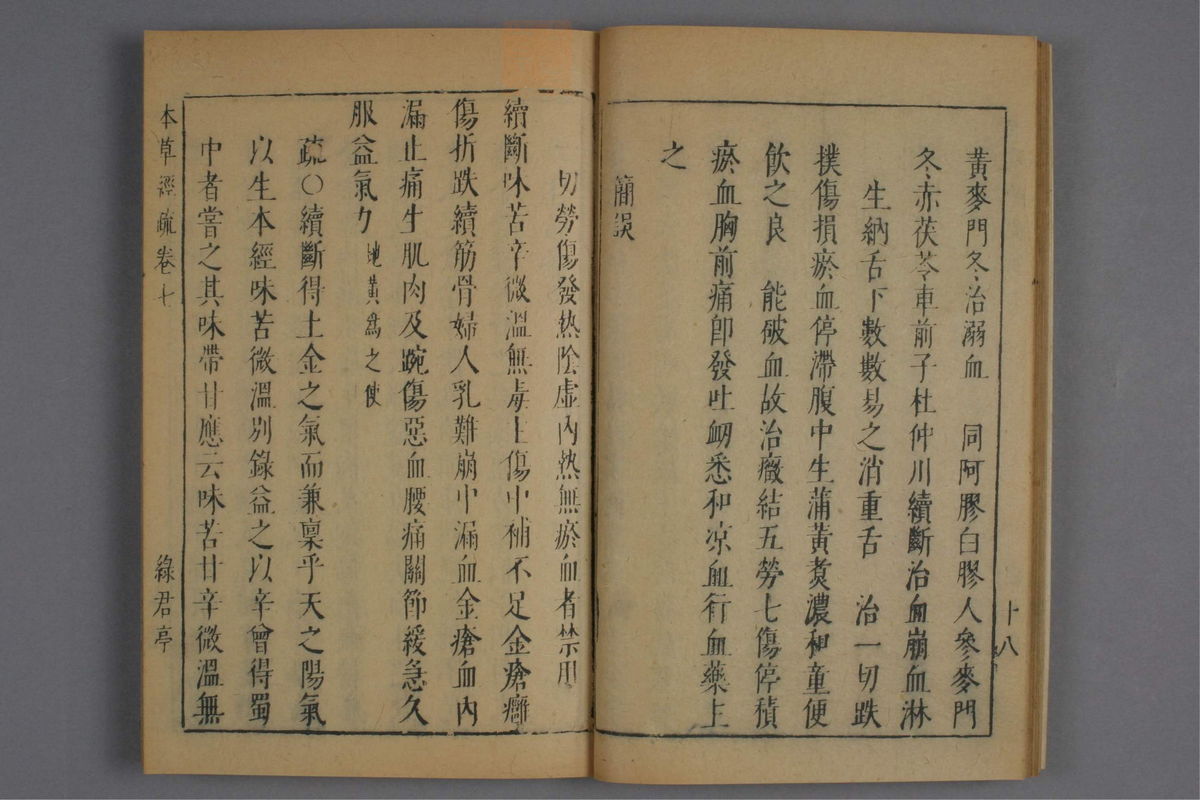 黃麥門冬治溺血　同阿膠白膠人參麥門
冬赤茯苓車前子杜仲川續斷治血崩血淋
生納舌下數數易之消重舌　治一切跌
撲傷損瘀血停滯腹中生蒲黃煑濃和童便
飮之良　能破血故治癥結五勞七傷停積
瘀血胸前痛卽發吐衂悉和凉血行血藥上
之
簡誤
十八
切勞傷發熱陰虛內熱無瘀血者禁用
續斷味苦辛微溫無毒主傷中補不足金瘡癰
傷折跌續筋骨婦人乳難崩中漏血金瘡血內
漏止痛生肌肉及踠傷惡血腰痛關節緩急久
服益氣力地黃爲之使
疏〇續斷得土金之氣而兼稟乎天之陽氣
以生本經味苦微溫別錄益之以辛曾得蜀
中者嘗之其味帶甘應云味苦甘辛微溫無
本草經疏卷七
綠君亭